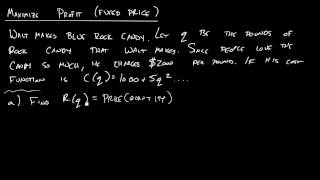 MAXIMIZE PROFIT (FIXED PRICE)
WALT MAKES BLUE ROCK CANDY. LET q BE THE POUNDS OF
ROCK CANDY THAT WALT MAKES. SINCE PEOPLE LOVE THE
CANDY SO MUCH, HE CHARGES $2000 PER POUND. IF HIS COST
FUNCTION IS C(q) = 1000 + 5q² ....
a) FIND R(q) = PRICE(QUANTITY)